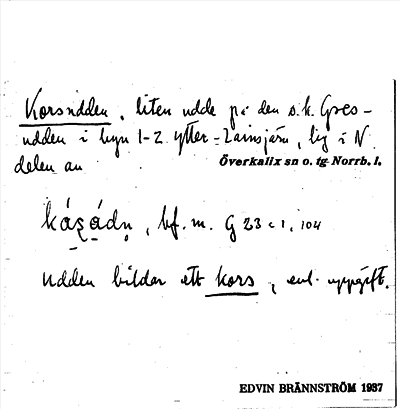 Korsudden, liten udde på den s.k. Gres-
udden i byn 1-2 Ytter-Lainsjärv, lig i N
delen av
Överkalix sn o. tg Norrb. l.
bf. m. G 23 c 1, 104
Udden bildar ett kors, enl. uppgift.
EDVIN BRÄNNSTRÖM 1937